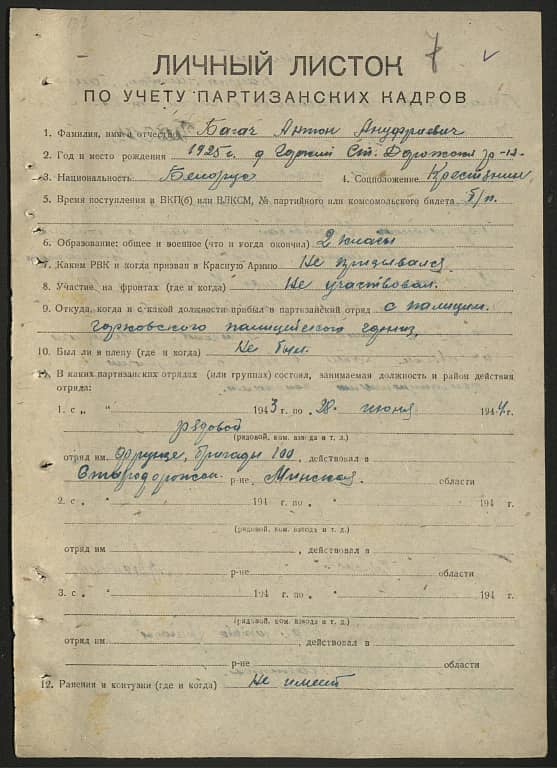 7
ЛИЧНЫЙ ЛИСТОК
ПО УЧЕТУ ПАРТИЗАНСКИХ КАДРОВ
1. Фамилия, имя и отчество Багач Антон Ануфриевич
2. Год и место рождения 1925 г. д Горки Ст. Дорожский р-н
3. Национальность Белорус 4. Соцположение Крестьянин
5. Время поступления в ВКП(б) или ВЛКСМ, № партийного или комсомольского билета б/п.
6. Образование: общее и военное (что и когда окончил) 2 класса
7. Каким РВК и когда призван в Красную Армию Не призывался
8. Участие на фронтах (где и когда) Не участвовал.
9. Откуда, когда и с какой должности прибыл в партизанский отряд с полиции.
Горковского полицейского
10. Был ли в плену (где и когда) Не был.
11. В каких партизанских отрядах (или группах) состоял, занимаемая должность и район действия
отряда:
1. с „ “ 1943 г. по „28“ июня 1944 г.
рядовой
(рядовой, ком. взвода и т. д.)
отряд им Фрунзе, бригады 100, действовал в
Стародорожском р-не Минской области
2. с „ “ 194 г. по „ “ 194 г.
(рядовой, ком. взвода и т. д.)
отряд им , действовал в
р-не области
3. с „ “ 194 г. по „ “ 194 г.
(рядовой, ком. взвода и т. д.)
отряд им , действовал в
р-не области
12. Ранения и контузии (где и когда) Не имеет